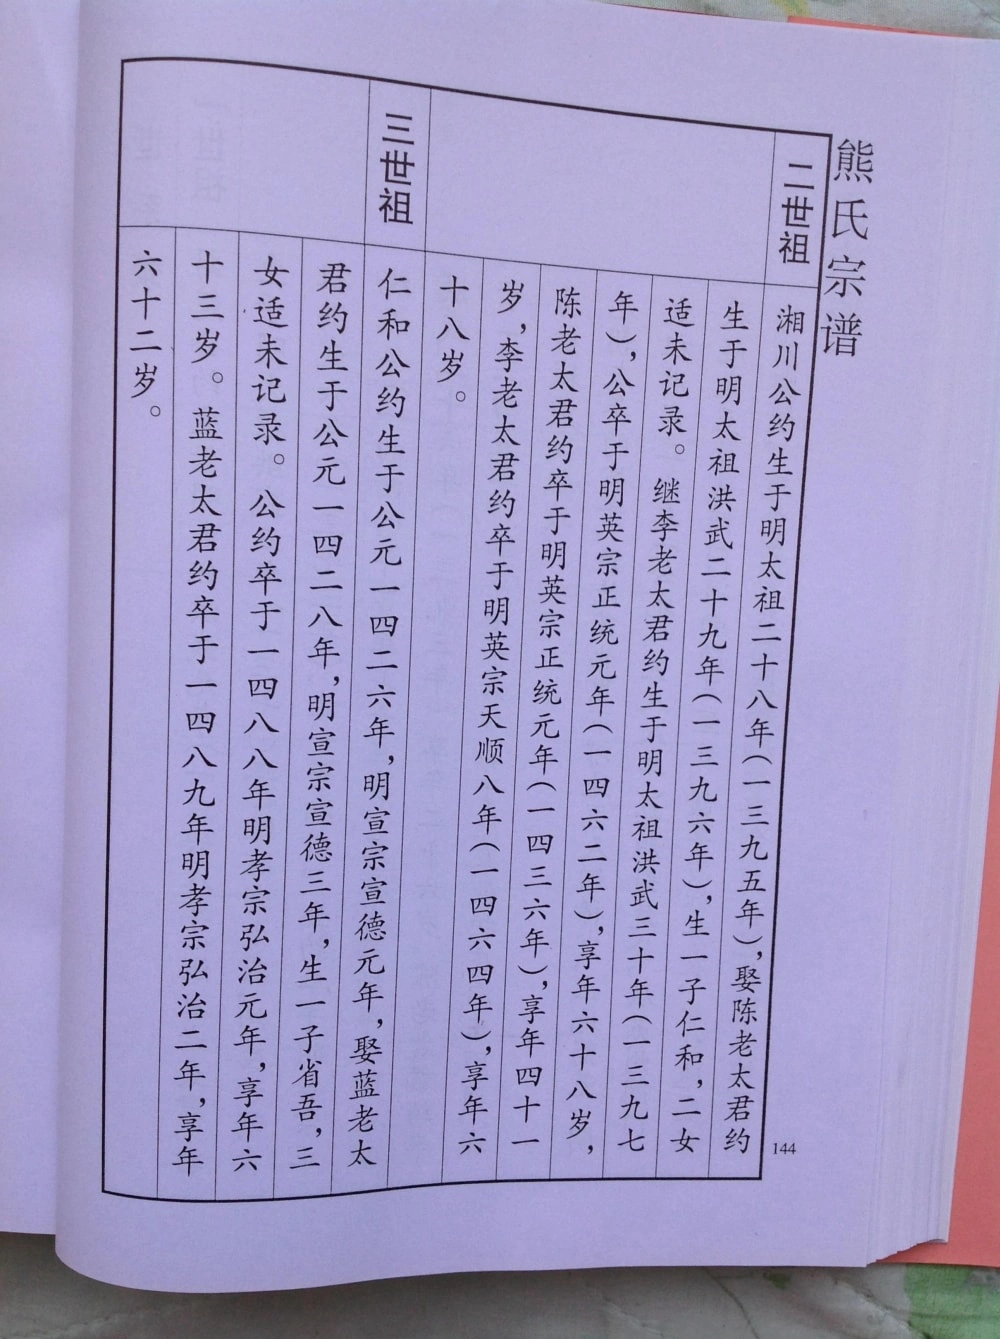 熊氏宗谱
二世祖
湘川公约生于明太祖二十八年(一三九五年),娶陈老太君约
生于明太祖洪武二十九年(一三九六年),生一子仁和,二女
适未记录。继李老太君约生于明太祖洪武三十年(一三九七
年),公卒于明英宗正统元年(一四六二年),享年六十八岁,
陈老太君约卒于明英宗正统元年(一四三六年),享年四十一
岁,李老太君约卒于明英宗天顺八年(一四六四年),享年六
十八岁。
三世祖
仁和公约生于公元一四二六年,明宣宗宣德元年,娶蓝老太
君约生于公元一四二八年,明宣宗宣德三年,生一子省吾,三
女适未记录。公约卒于一四八八年明孝宗弘治元年,享年六
十三岁。蓝老太君约卒于一四八九年明孝宗弘治二年,享年
六十二岁。
144